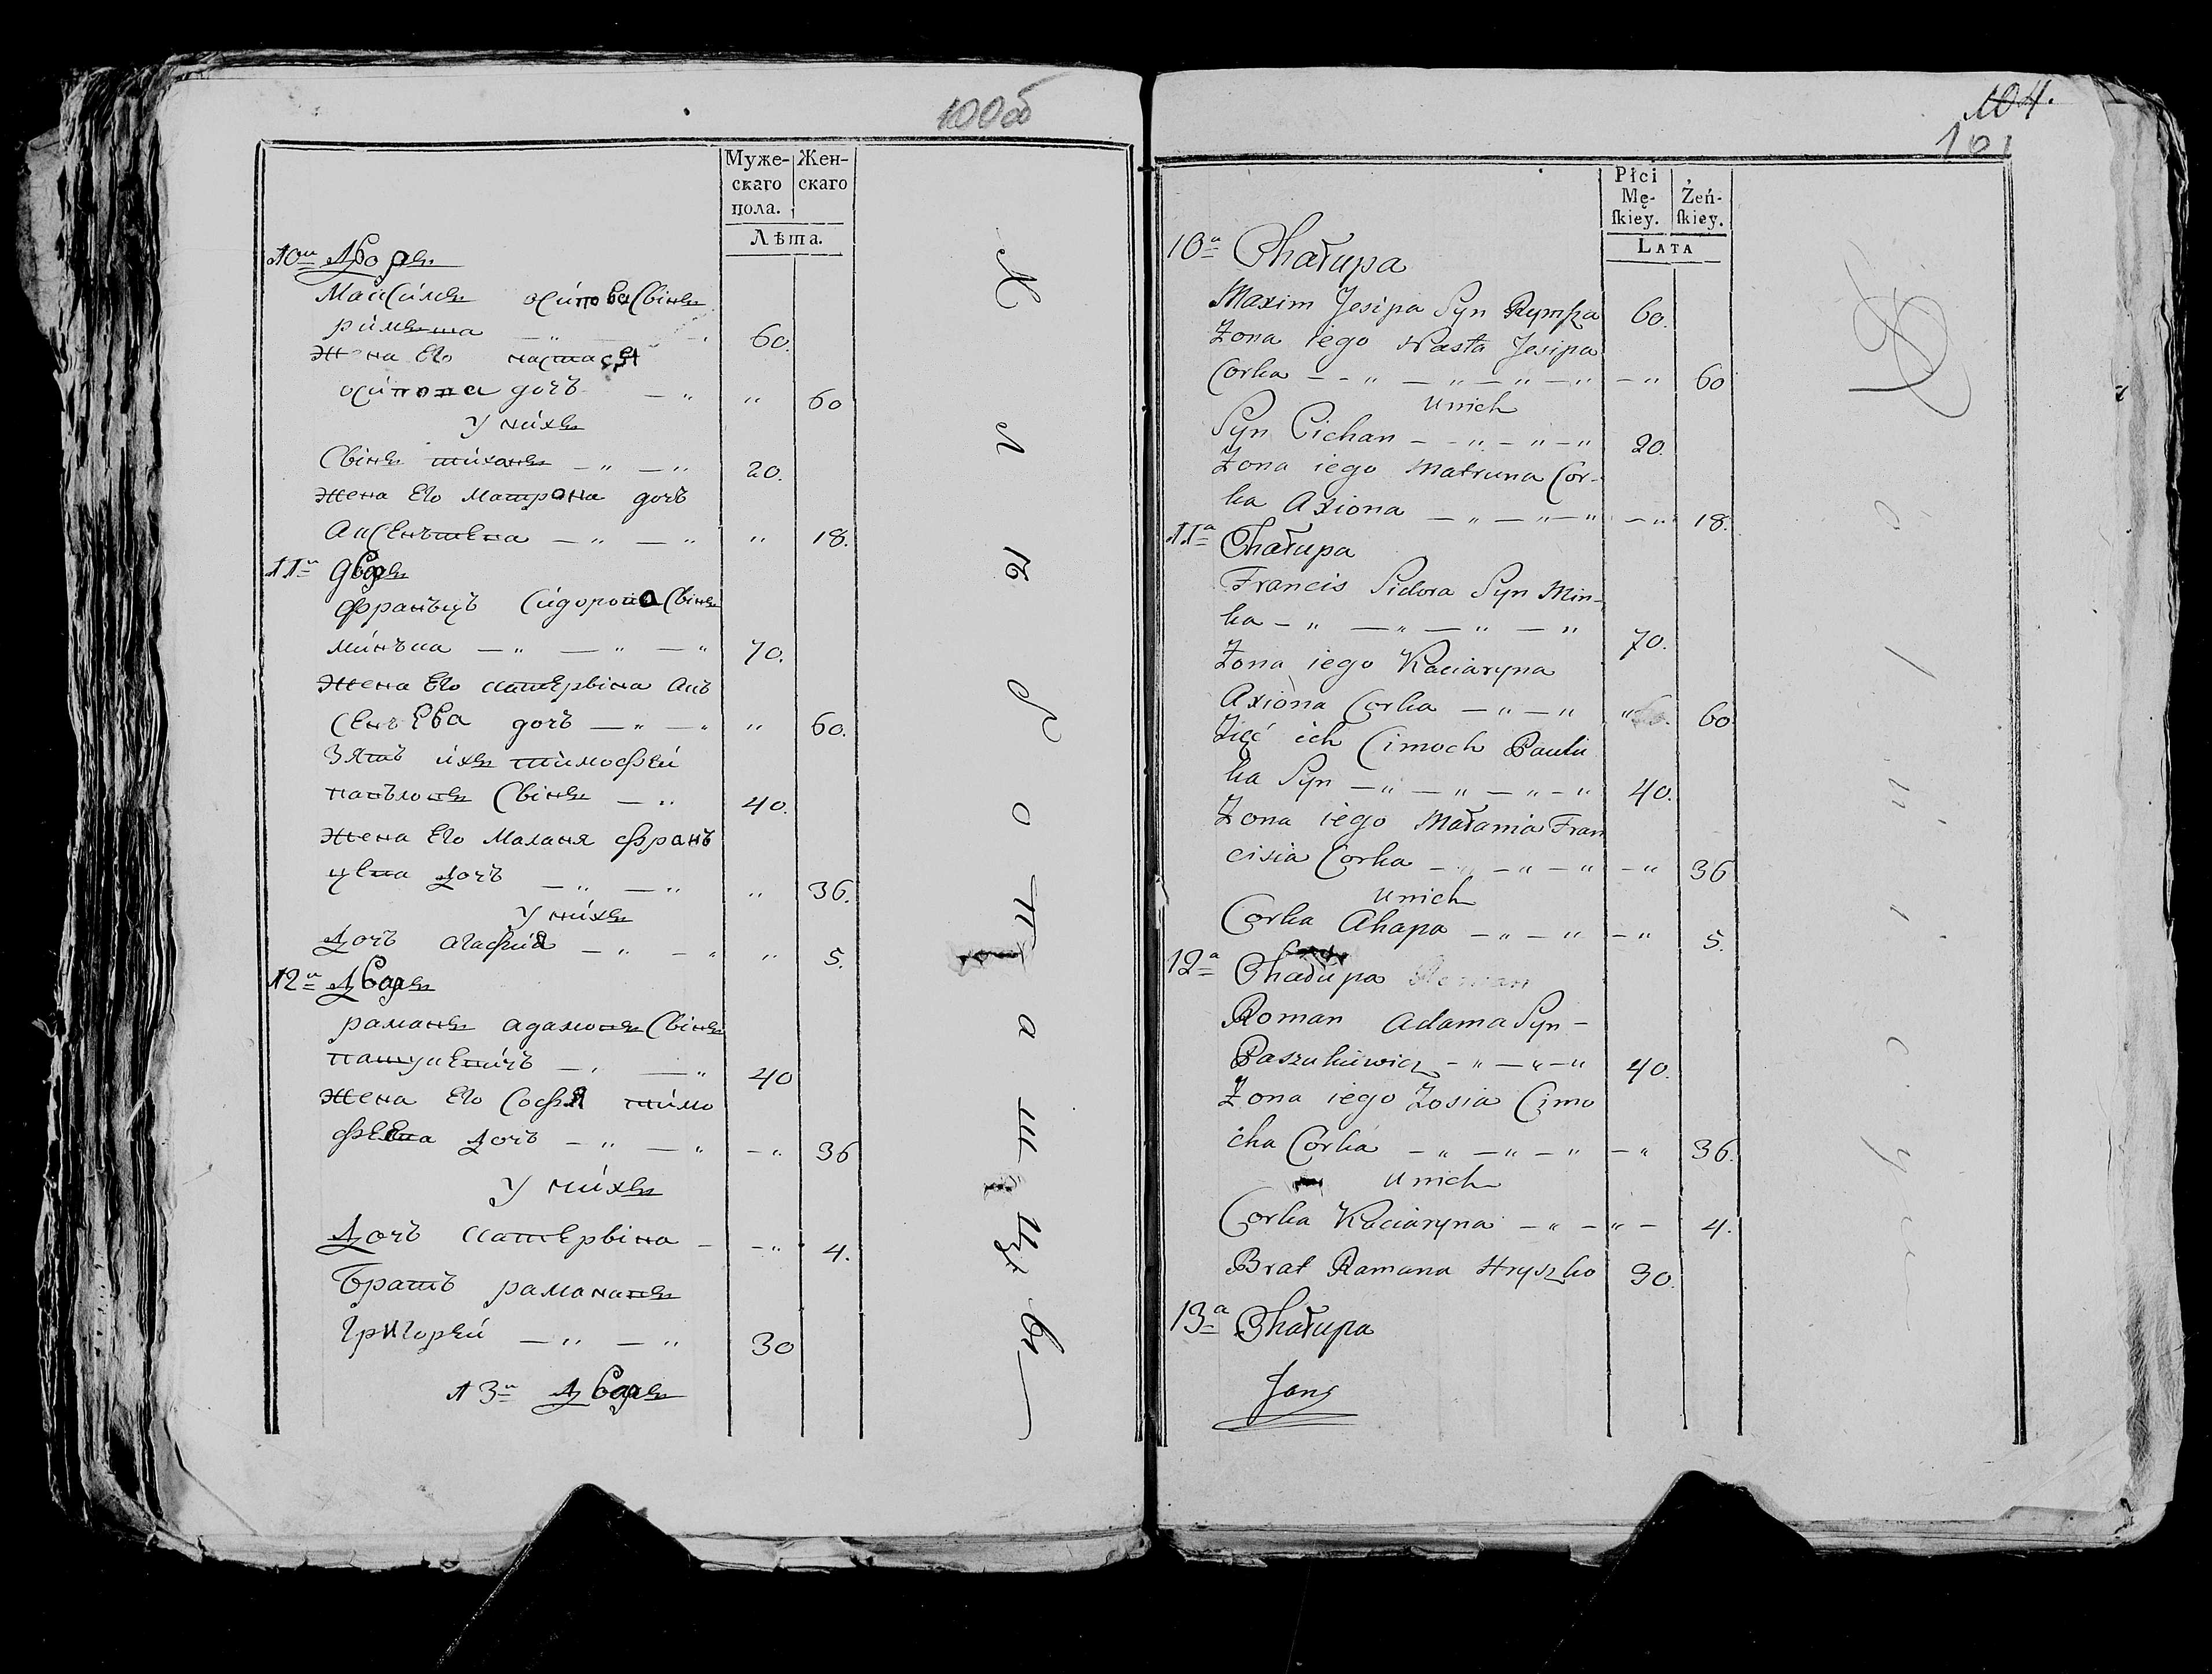 100об
Муже-
скаго
пола.
Жен-
скаго
Лѣта.
10й Дворъ
Максимъ осипова Сынъ
римша — „ 60.
Жена Его настася
осипова дочъ — „ „ 60
У нихъ
Сынъ тиханъ — „ — „ 20.
Жена Его Матрона дочъ
Аксенътева — „ — „ „ 18.
11й Дворъ
Францъ Сидорова Сынъ
минъка — „ — „ — „ 70.
Жена Его катерына Акъ
сенъева дочъ — „ — „ „ 60.
Зять ихъ тимофей
павъловъ Сынъ — „ 40.
Жена Его Маланя франъ
цева дочъ — „ — „ „ 36.
У нихъ
Дочъ агафия — „ — „ „ 5.
12й Дворъ
раманъ адамовъ Сынъ
пашукевичъ — „ — „ 40
Жена Его Софья тимо
феева Дочъ — „ — „ — „ 36
У нихъ
Дочъ катерына — — „ 4.
Братъ рамановъ
григорей — „ — „ 30
13й Дворъ
104.
101
Płci
Mę-
skiey.
Żeń-
skiey.
LATA
10a Chałupa
Maxim Jesipa Syn Rymsza 60.
Zona iego Nasta Jesipa
Corka — „ — „ — „ — „ — „ 60
Unich
Syn Cichan — „ — „ — „ 20.
Zona iego Matruna Cor-
ka Axiona — „ — „ — „ — „ 18.
11a Chałupa
Francis Sidora Syn Min-
ka — „ — „ — „ — „ 70.
Zona iego Kaciaryna
Axiona Corka — „ — „ „ 60
Zięć ich Cimoch Pauluka
Syn — „ — „ — „ — „ 40.
Zona iego Małania Fran
cisia Corka — „ — „ — „ — „ 36
Unich
Corka Ahapa — „ — „ — „ 5.
12a Chałupa
Roman Adama Syn —
Paszukiewicz — „ — „ — „ 40.
Zona iego Zosia Cimo
cha Corka — „ — „ — „ — „ 36.
Unich
Corka Kaciaryna — „ — „ — 4.
Brat Ramana Hryszko 30.
13a Chałupa